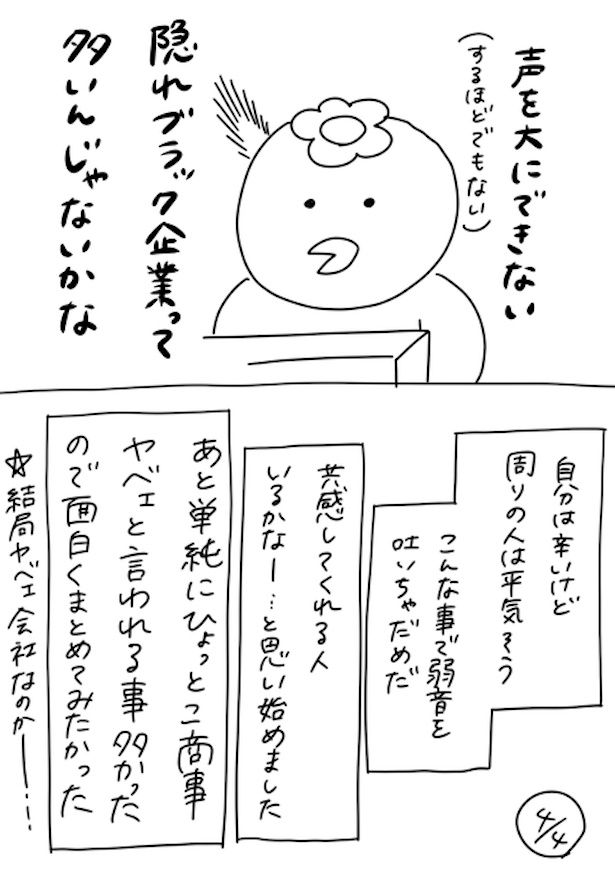 声を大にできない
(するほどでもない)
隠れブラック企業って
多いんじゃないかな
自分は辛いけど
周りの人は平気そう
こんな事で弱音を
吐いちゃだめだ
共感してくれる人
いるかなー…と思い始めました
あと単純にひょっとこ商事
ヤベェと言われる事多かった
ので面白くまとめてみたかった
☆結局ヤベェ会社なのかー…
4/4